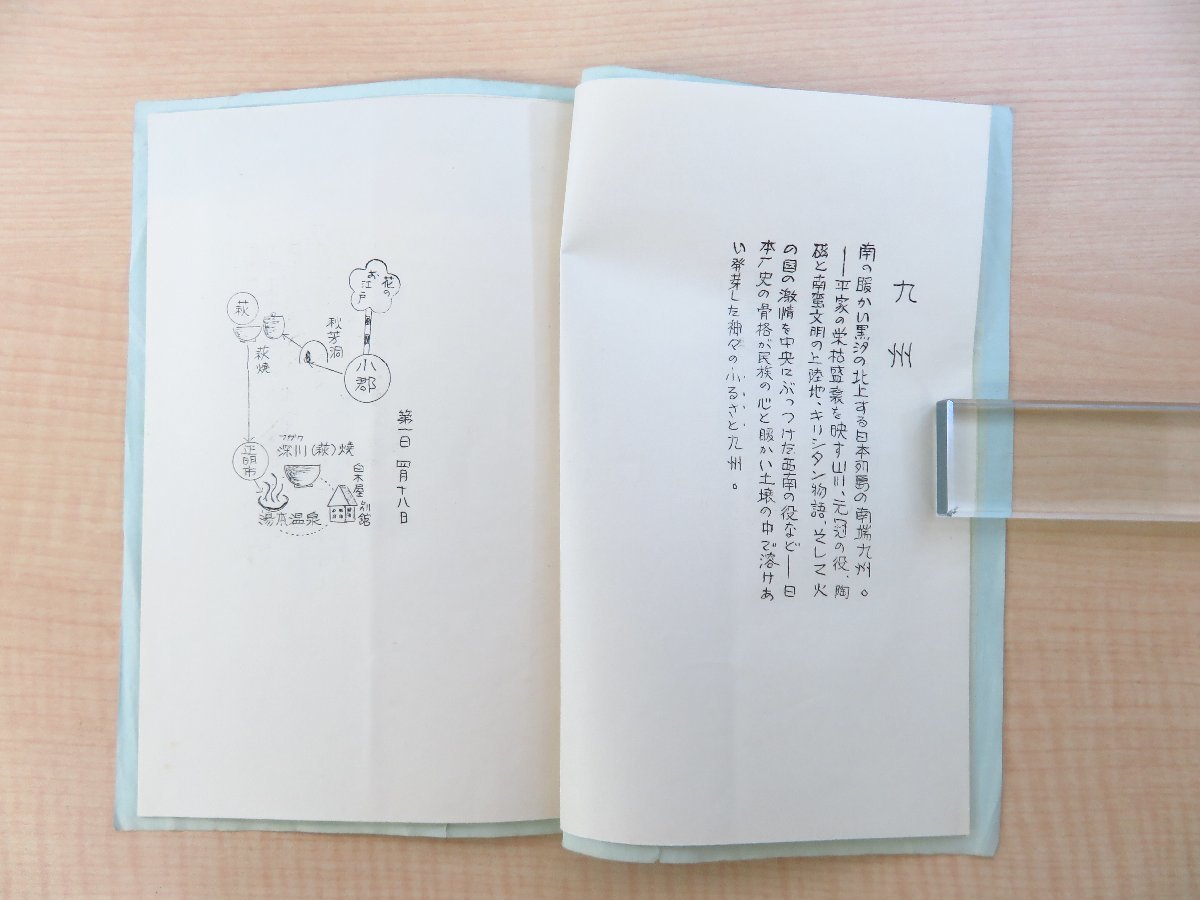 九州
南の暖かい黒汐の北上する日本列島の南端九州。
——平家の栄枯盛衰を映す山川、元冠の役、陶
磁と南蛮文明の上陸地、キリシタン物語、そして火
の国の激情を中央にぶっつけた西南の役など——日
本歴史の骨格が民族の心と暖かい土壌の中で溶けあ
い発芽した神々のふるさと九州。
第一日 四月十八日
花の
お江戸
小郡
秋芳洞
萩
萩焼
正明市
フカワ
深川(萩)焼
白木屋
別館
湯本温泉